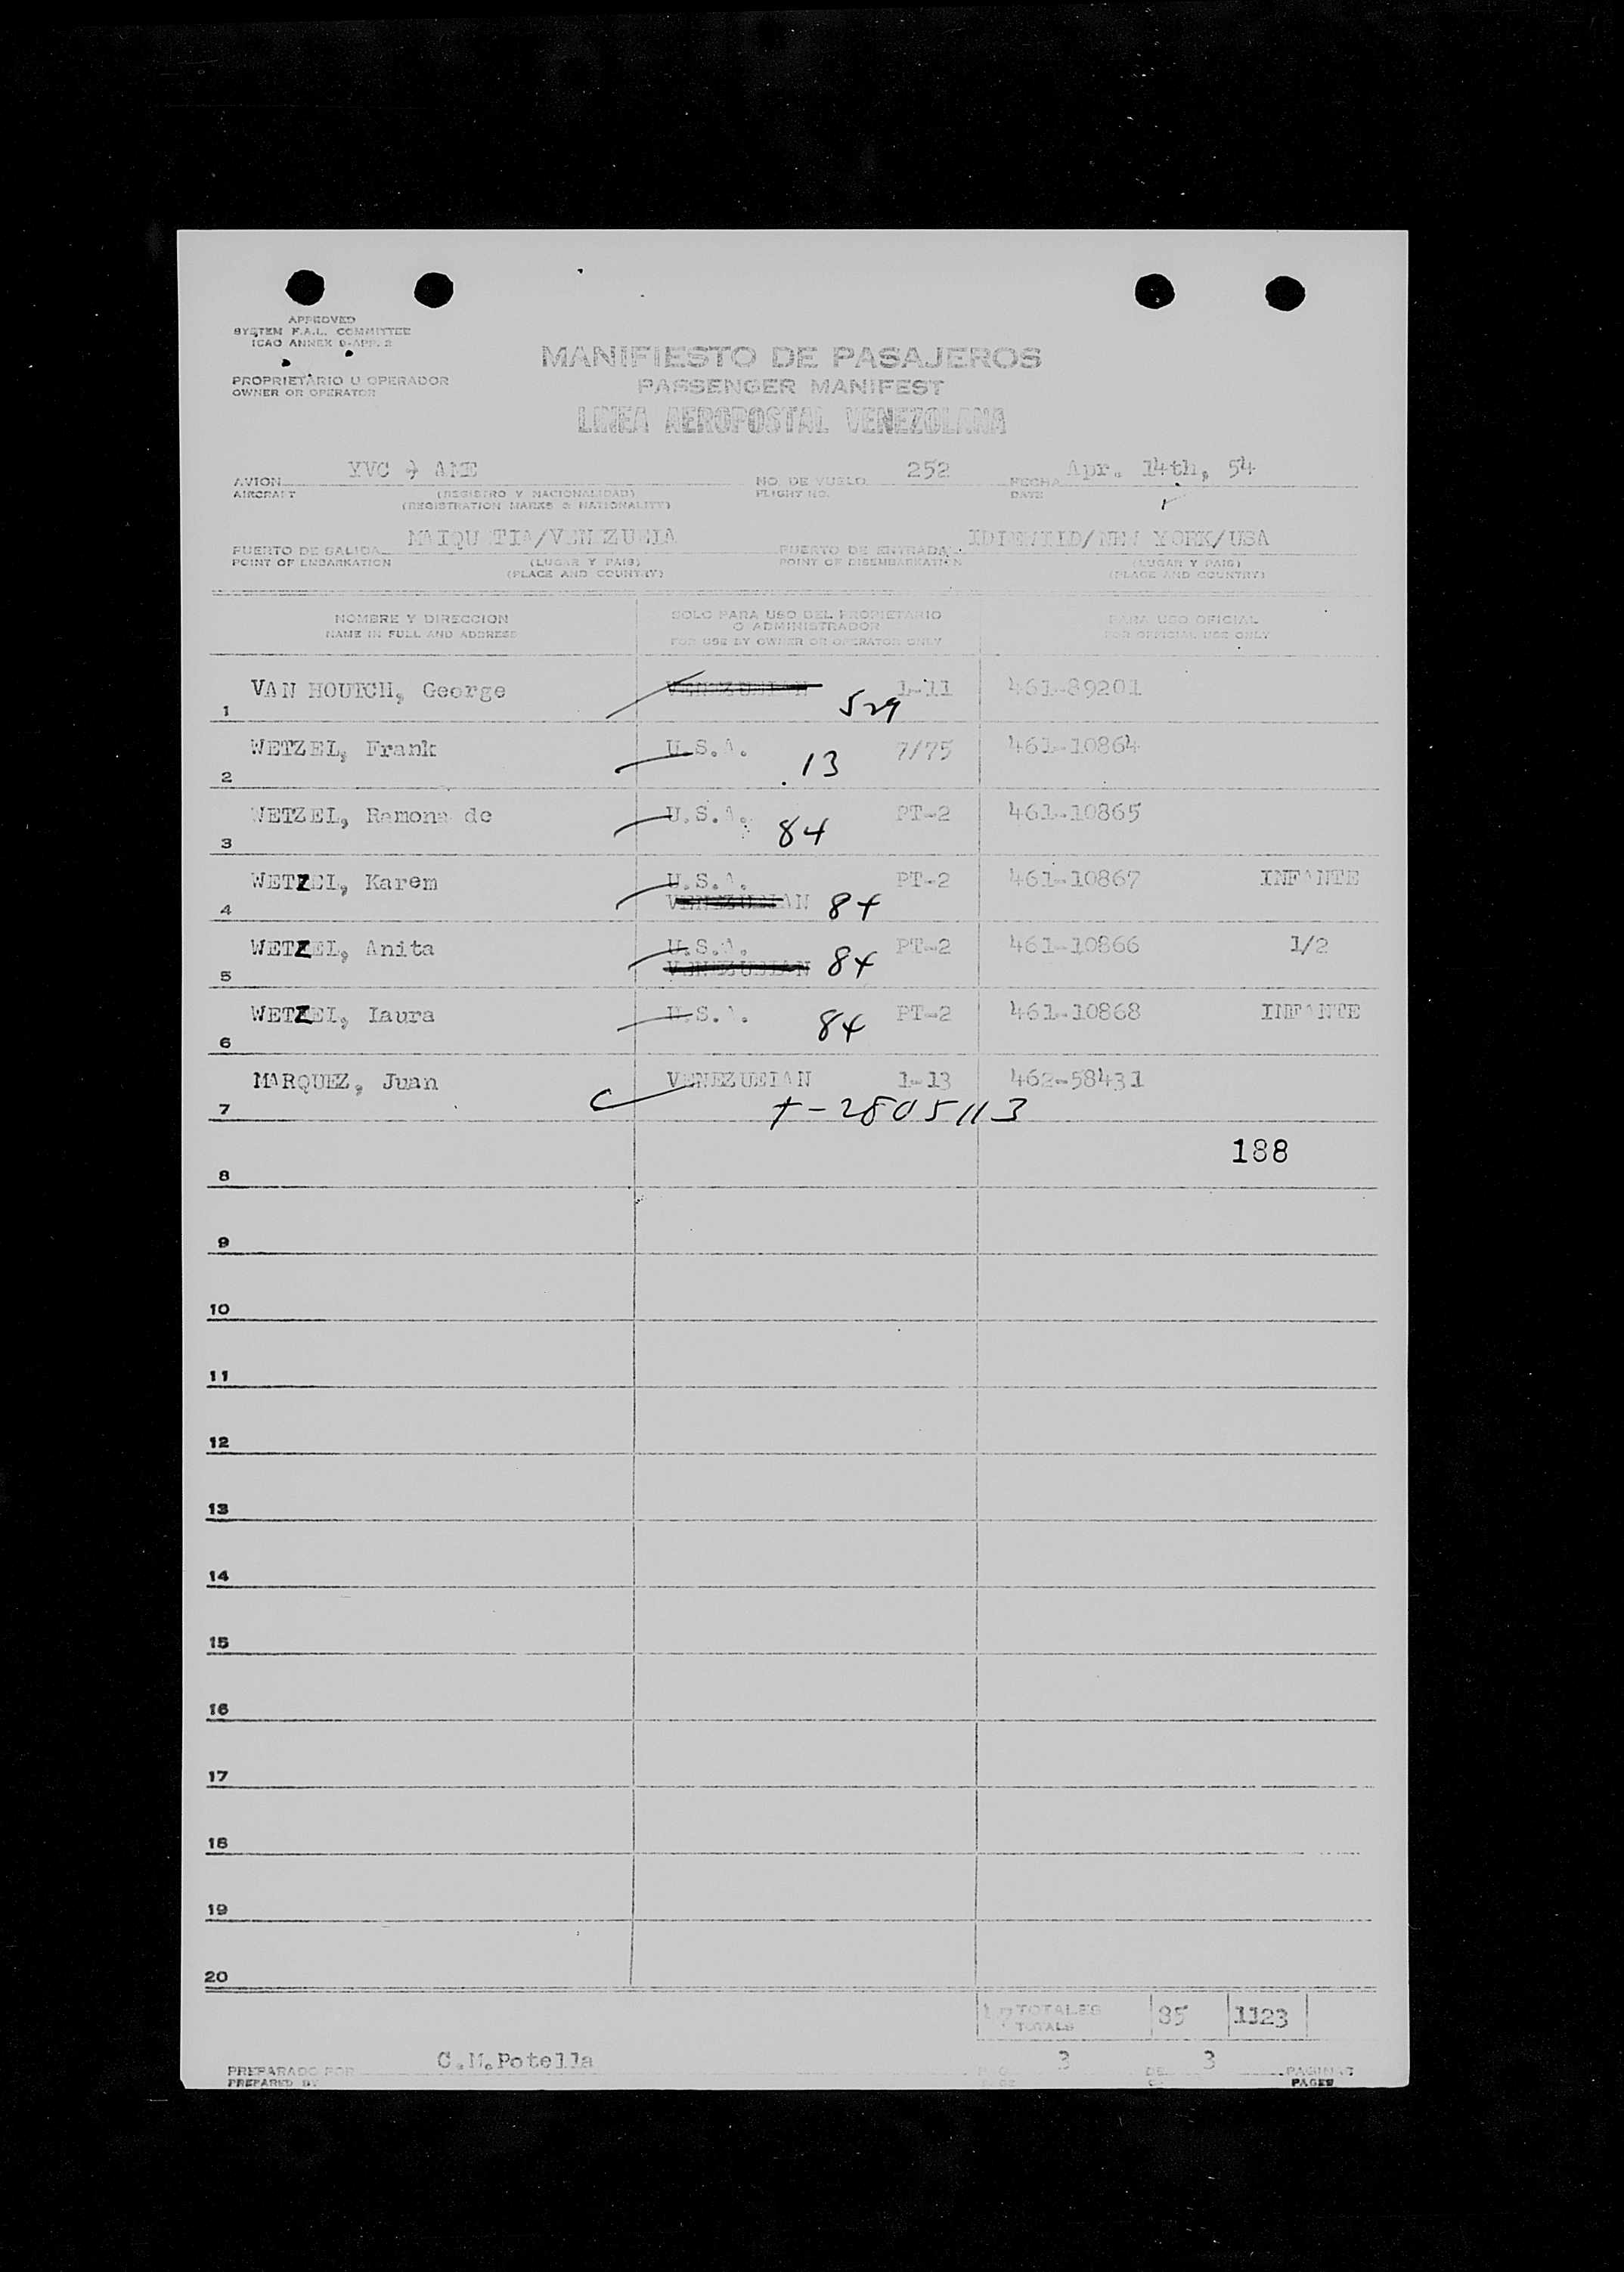 APPROVED
SYSTEM F.A.L. COMMITTEE
ICAO ANNEX 9-APP. 2
PROPRIETARIO U OPERADOR
OWNER OR OPERATOR
MANIFIESTO DE PASAJEROS
PASSENGER MANIFEST
LINEA AEROPOSTAL VENEZOLANA
AVION YVC AME NO. DE VUELO 252 FECHA Apr. 14th, 54
AIRCRAFT (REGISTRO Y NACIONALIDAD) FLIGHT NO. DATE
(REGISTRATION MARKS & NATIONALITY)
PUERTO DE SALIDA MAIQUETIA/VENEZUELA PUERTO DE ENTRADA IDLEWILD/NEW YORK/USA
POINT OF EMBARKATION (LUGAR Y PAIS) POINT OF DISEMBARKATION (LUGAR Y PAIS)
(PLACE AND COUNTRY) (PLACE AND COUNTRY)
NOMBRE Y DIRECCION SOLO PARA USO DEL PROPIETARIO PARA USO OFICIAL
O ADMINISTRADOR
NAME IN FULL AND ADDRESS FOR USE BY OWNER OR OPERATOR ONLY FOR OFFICIAL USE ONLY
1 VAN HOUTCH, George VENEZUELAN 1-11 461-89201
529
2 WETZEL, Frank U.S.A. 7/75 461-10864
13
3 WETZEL, Ramona de U.S.A. PT-2 461-10865
84
4 WETZEL, Karem U.S.A. PT-2 461-10867 INFANTE
VENEZUELAN 84
5 WETZEL, Anita U.S.A. PT-2 461-10866 1/2
VENEZUELAN 84
6 WETZEL, Laura U.S.A. PT-2 461-10868 INFANTE
84
7 MARQUEZ, Juan VENEZUELAN 1-13 462-58431
T-2805113
188
8
9
10
11
12
13
14
15
16
17
18
19
20
TOTALES 85 1123
TOTALS
PREPARADO POR C.M.Potella 3 DE 3 PAGINAS
PREPARED BY PAGES